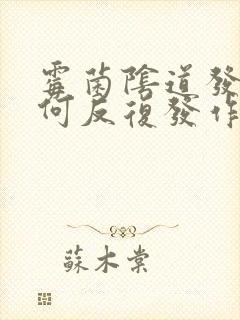 霉菌陰道發
何反復發作
蘇木棠